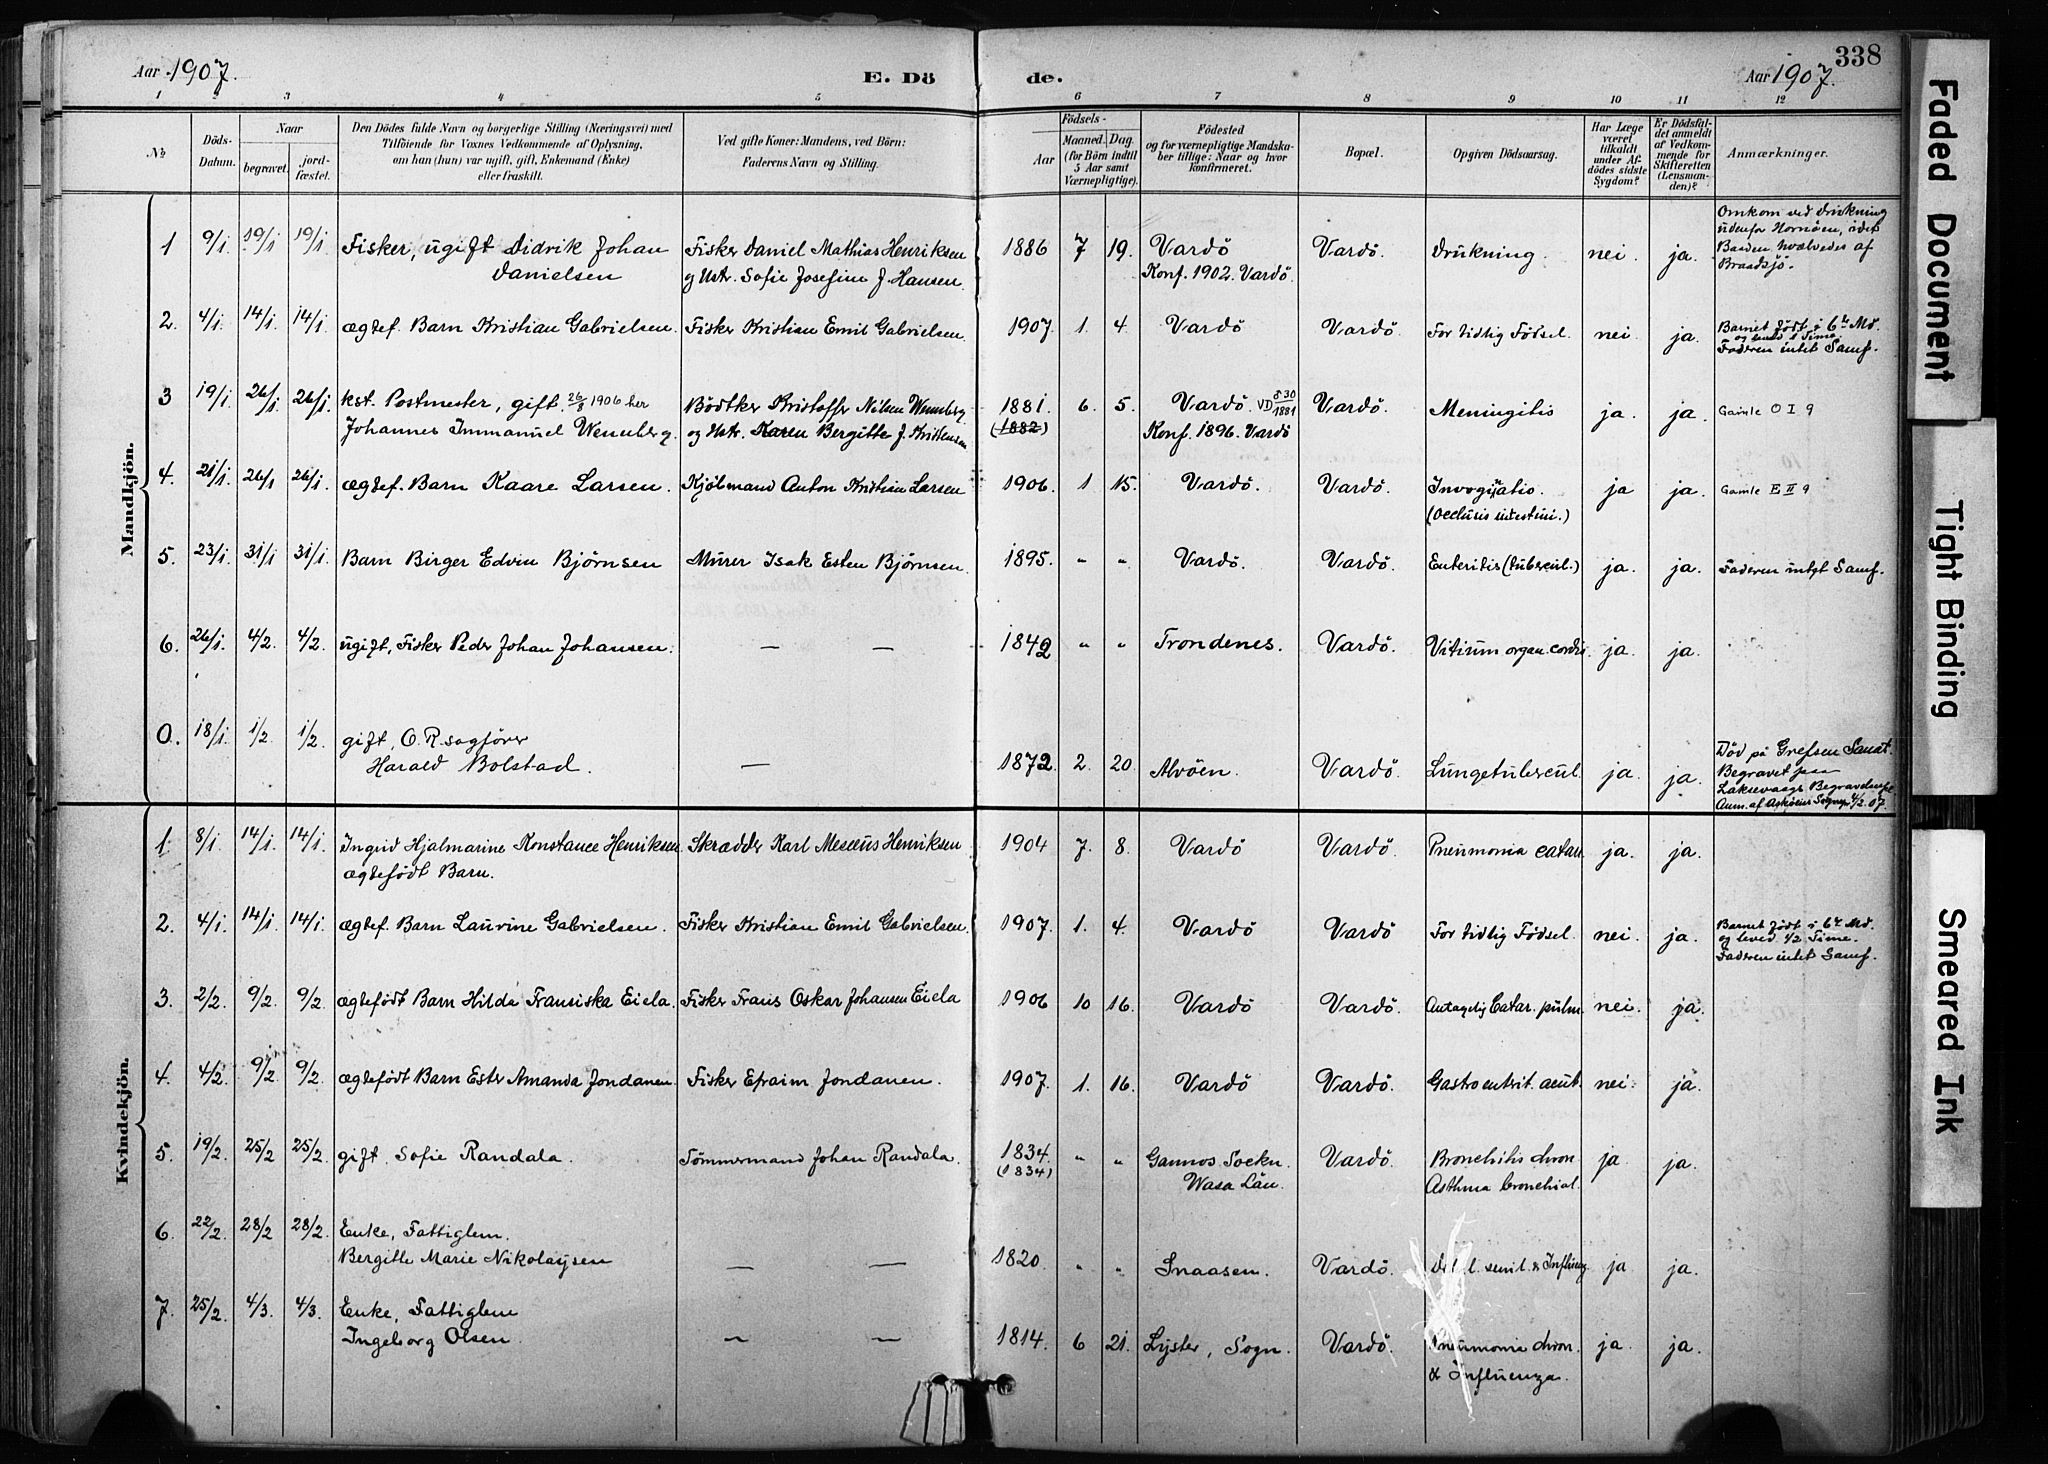 338
Aar 1907.
E. Dö
de.
Aar 1907.
1 2 3 4 5 6 7 8 9 10 11 12
№
Döds-Datum.
Naar
begravet.
jord-fæstet.
Den Dödes fulde Navn og borgerlige Stilling (Næringsvei) med
Tilföiende for Voxnes Vedkommende af Oplysning,
om han (hun) var ugift, gift, Enkemand (Enke)
eller fraskilt.
Ved gifte Koner: Mandens, ved Börn:
Faderens Navn og Stilling.
Födsels-
Aar
Maaned. Dag.
(for Börn indtil
5 Aar samt
Værnepligtige).
Födested
og for værnepligtige Mandska-
ber tillige: Naar og hvor
konfirmeret.
Bopæl.
Opgiven Dödsaarsag.
Har Læge
været
tilkaldt
under Af-
dödes sidste
Sygdom?
Er Dödsfal-
det anmeldt
af Vedkom-
mende for
Skifteretten
(Lensman-
den)?
Anmærkninger.
Mandkjön.
1 9/1 19/1 19/1 Fisker, ugift Didrik Johan Danielsen
Fisker Daniel Mathias Henriksen
og Hstr. Sofie Josefine J. Hansen.
1886 7 19. Vardö
Konf. 1902. Vardö.
Vardö. Drukning. nei. ja.
Omkom ved drukning
udenfor Hornöen, idet
Baaden hvælvedes af
Braadsjö.
2. 4/1 14/1. 14/1. ægtef. Barn Kristian Gabrielsen. Fisker Kristian Emil Gabrielsen.
1907. 1. 4. Vardö Vardö. For tidlig Födsel. nei. ja.
Barnet födt i 6te Md.
og 1 Time.
Faderen intet Samf.
3 19/1. 26/1 26/1. kst. Postmester, gift 26/8 1906 her
Johannes Immanuel Wennberg.
Bödtker Kristoffer Nilsen Wennberg
og Hstr. Karen Bergitte J. Kristensen
1881. 6. 5. Vardö. VD § 30 1881
(1882) Konf. 1896. Vardö
Vardö. Meningitis ja. ja. Gamle O I 9
4. 21/1 26/1 26/1. ægtef. Barn Kaare Larsen. Kjöbmand Anton Kristian Larsen
1906. 1 15. Vardö. Vardö.
(Occlusis intestini.)
ja ja. Gamle E II 9
5. 23/1. 31/1 31/1. Barn Birger Edvin Bjørnsen Murer Isak Esten Bjørnsen.
1895. " " Vardö. Vardö. Enteritis (tubercul.) ja. ja. Faderen intet Samf.
6. 26/1 4/2. 4/2. ugift, Fisker Peder Johan Johansen. — —
1842 " " Trondenes. Vardö. Vitium organ. cordis. ja. ja.
0. 18/1. 1/2 1/2. gift, O. R. sagförer
Harald Bolstad. —
1872. 2. 20. Alvöen. Vardö. Lungetubercul. ja. ja.
Död på Grefsen Sanat.
Begravet paa
Laksevaags Begravelsespl.
Anm. af Askøens Sogne­p. 4/2 07.
Kvindekjön.
1. 8/1. 14/1. 14/1. Ingrid Hjalmarine Konstance Henriksen.
ægtefödt Barn.
Skrædder Karl Henriksen
1904 7. 8. Vardö Vardö. Pneumonia catarr. ja. ja.
2. 4/1. 14/1. 14/1. ægtef. Barn Laurine Gabrielsen. Fisker Kristian Emil Gabrielsen.
1907. 1. 4. Vardö Vardö For tidlig Födsel. nei. ja.
Barnet födt i 6te Md.
og leved 1/2 Time.
Faderen intet Samf.
3. 2/2. 9/2. 9/2. ægtefödt Barn Hilda Fransiska Eiela. Fisker Frans Oskar Johansen Eiela
1906 10 16. Vardö Vardö. Antagelig Catar. pulm. nei. ja.
4. 4/2. 9/2. 9/2. ægtefödt Barn Ester Amanda Jondanen. Fisker Efraim Jondanen.
1907. 1. 16. Vardö Vardö. Gastroentrit. acut. nei. ja.
5. 19/2. 25/2 25/2. gift. Sofie Randala. Tömmermand Johan Randala.
1834. " "
(1834)
Gamnos. Sockn.
Wasa Län.
Vardö. Bronchitis chron
Asthma bronchial.
ja ja.
6. 22/2. 28/2 28/2. Enke, Fattiglem.
Bergitte Marie Nikolaysen — —
1820. " " Snaasen. Vardö. senil. & Influenz. ja ja.
7. 25/2. 4/3. 4/3. Enke, Fattiglem
Ingeborg Olsen. — —
1814. 6 21. Lyster, Sogn. Vardö. Pneumonia chron
& Influenza.
ja. ja.
Faded Document
Tight Binding
Smeared Ink